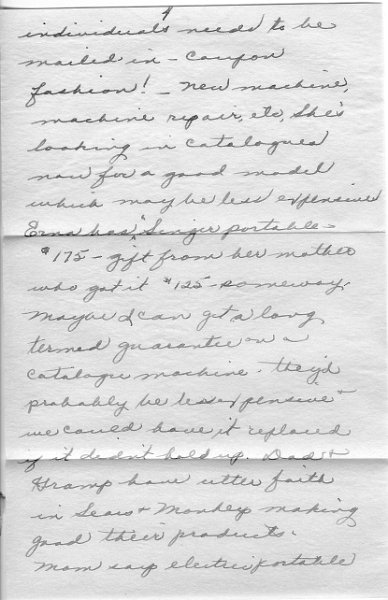 4
individuals needs to be
mailed in - coupon
fashion! - New machine,
machine repair, etc, She's
looking in catalogues
now for a good model
which may be less expensive
Erna has "Singer portable -
$175 - gift from her mother
who got it $125 - someway.
Maybe I can get a long
termed guarantee on a
catalogue machine - they'd
probably be less expensive +
we could have it replaced
if it didn't hold up. Dad +
Gramp have utter faith
in Sears + Monkey making
good their products.
Mom says electric portable